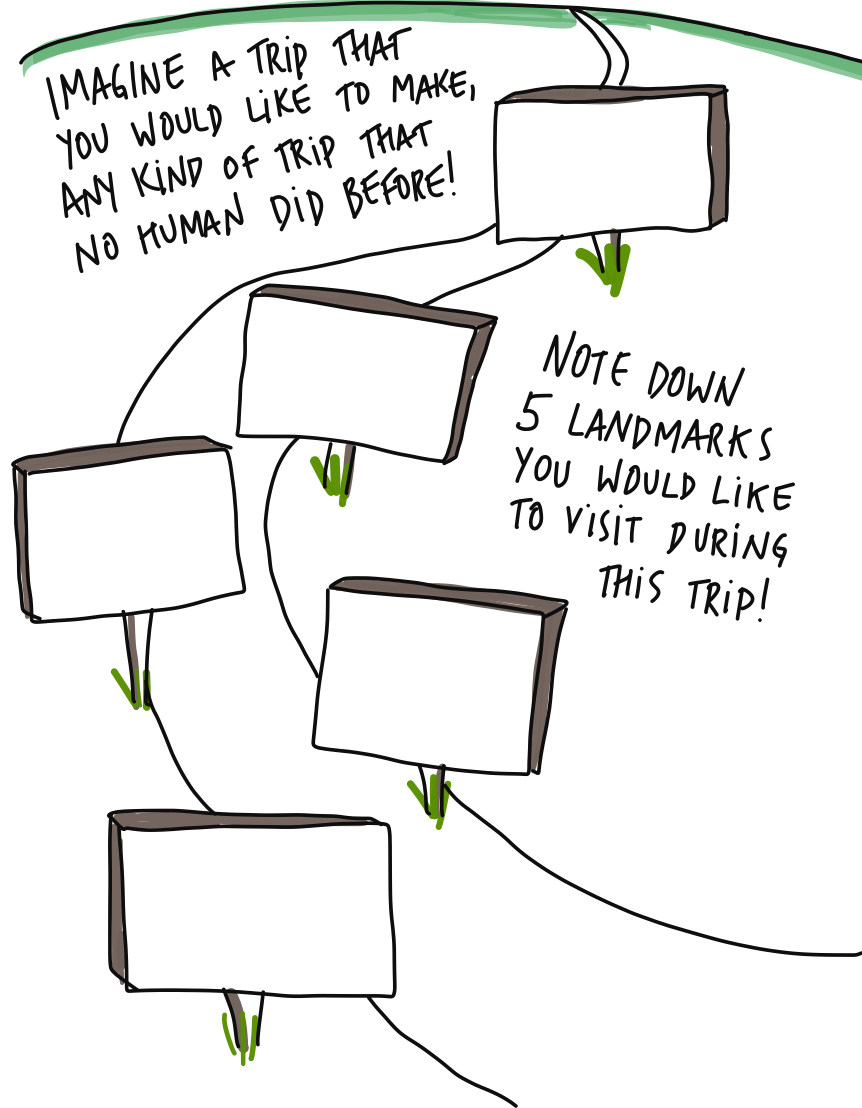 IMAGINE A TRIP THAT
YOU WOULD LIKE TO MAKE,
ANY KIND OF TRIP THAT
NO HUMAN DID BEFORE!
NOTE DOWN
5 LANDMARKS
YOU WOULD LIKE
TO VISIT DURING
THIS TRIP!